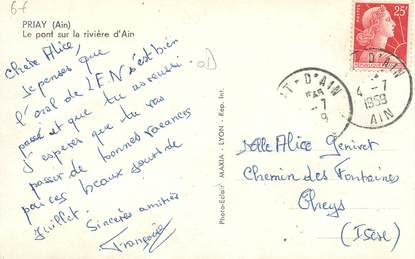 6f
PRIAY (Ain)
Le pont sur la rivière d'Ain
Chère Alice,
Je pense que
l'oral de l'E.N s'est bien
passé et que tu as réussi.
J'espère que tu vas
passer de bonnes vacances
par ces beaux jours de
Juillet.
Sincères amitiés
Françoise
Photo-Eclair MAXIA - LYON - Rep. Int.
25F
POSTES
D'AIN
4-7
1959
AIN
T D'AIN
-7
9
Melle Alice Genivet
Chemin des Fontaines
Cheys
(Isère)